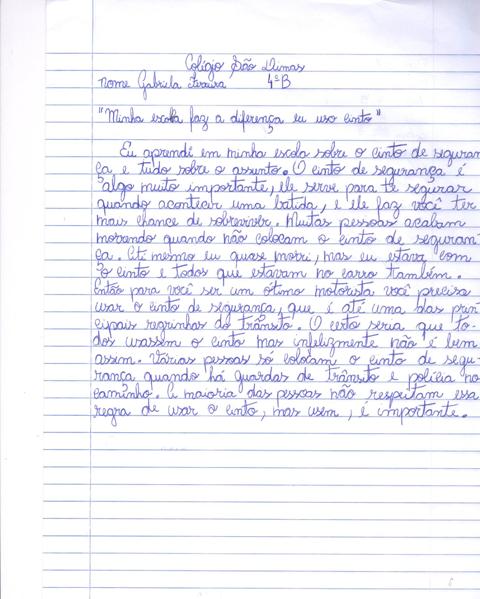 Colégio São Dumas
nome Gabriela 4ºB
"Minha escola faz a diferença eu uso cinto"
Eu aprendi em minha escola sobre o cinto de seguran
ça e tudo sobre o assunto. O cinto de segurança é
algo muito importante, ele serve para te segurar
quando acontecer uma batida, e ele faz você ter
mais chance de sobreviver. Muitas pessoas acabam
morrendo quando não colocam o cinto de seguran
ça. Até mesmo eu quase morri, mas eu estava com
o cinto e todos que estavam no carro também.
Então para você ser um ótimo motorista você precisa
usar o cinto de segurança, que é até uma das prin
cipais regrinhas do trânsito. O certo seria que to-
dos usassem o cinto mas infelizmente não é bem
assim. Várias pessoas só colocam o cinto de segu-
rança quando há guardas de trânsito e polícia no
caminho. A maioria das pessoas não respeitam essa
regra de usar o cinto, mas usem, é importante.